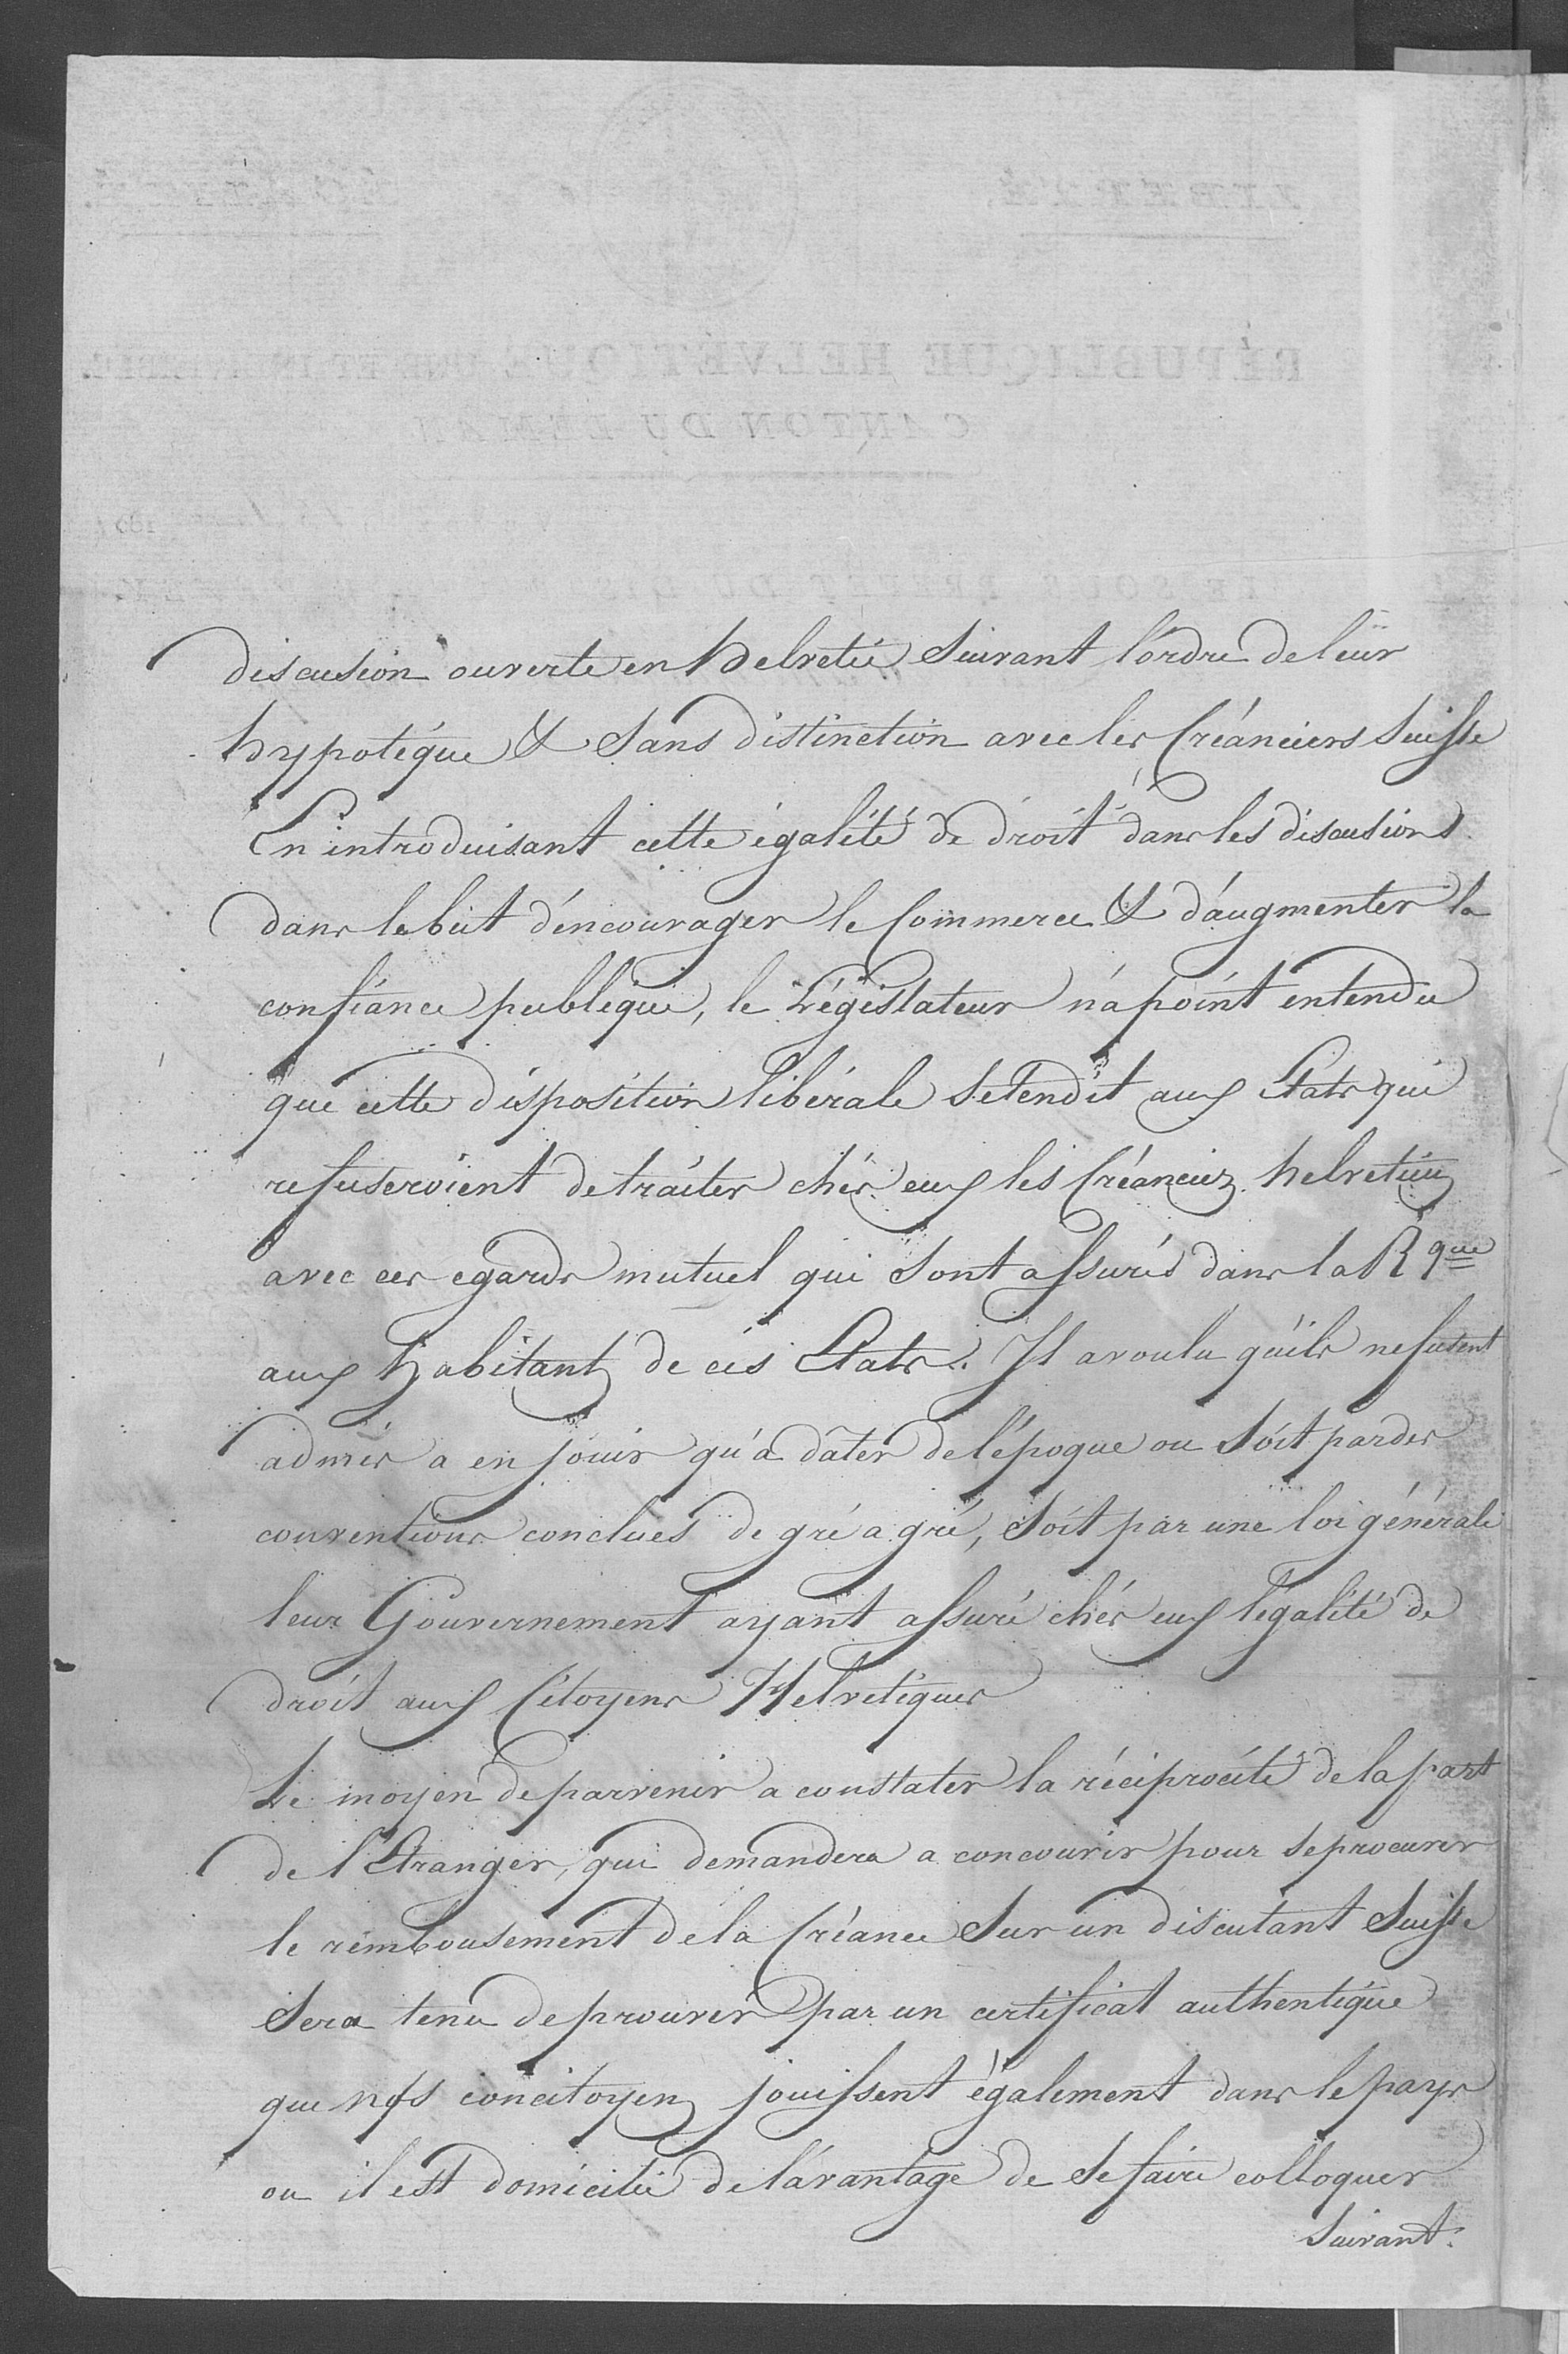 discusion ouverte en Helvetie Suivant l'ordre de leur
hypotéque & Sans distinction avec les Créanciers Suisse
En introduisant cette égalité de droit dans les discusions
dans le but d'encourager le Commerce & d'augmenter la
confiance publique, le Législateur n'a point entendu
que cette disposition libérale Setendit aux Etats qui
refuseroient de traiter chés eux les Créanciers helvetiens
avec ces egards mutuel qui Sont assurés dans la Rque
aux habitants de ces Etats. Il a voulu qu'ils ne fusent
admis a en jouir qu'a dater de l'époque ou Soit par des
conventions conclues de gré a gré, Soit par une loi générale
leur Gouvernement ayant assuré chés eux l'égalité de
droit aux Citoyens Helvetiques
Le moyen de parvenir a constater la réciprocité de la part
de l'Etranger, qui demandera a concourir pour se procurer
le rembousement de la Créance Sur un discutant Suisse
Sera tenu de prouver par un certificat authentique
que nos concitoyens jouissent également dans le pays
ou il est domicilié de l'avantage de Se faire colloquer
Suivant.